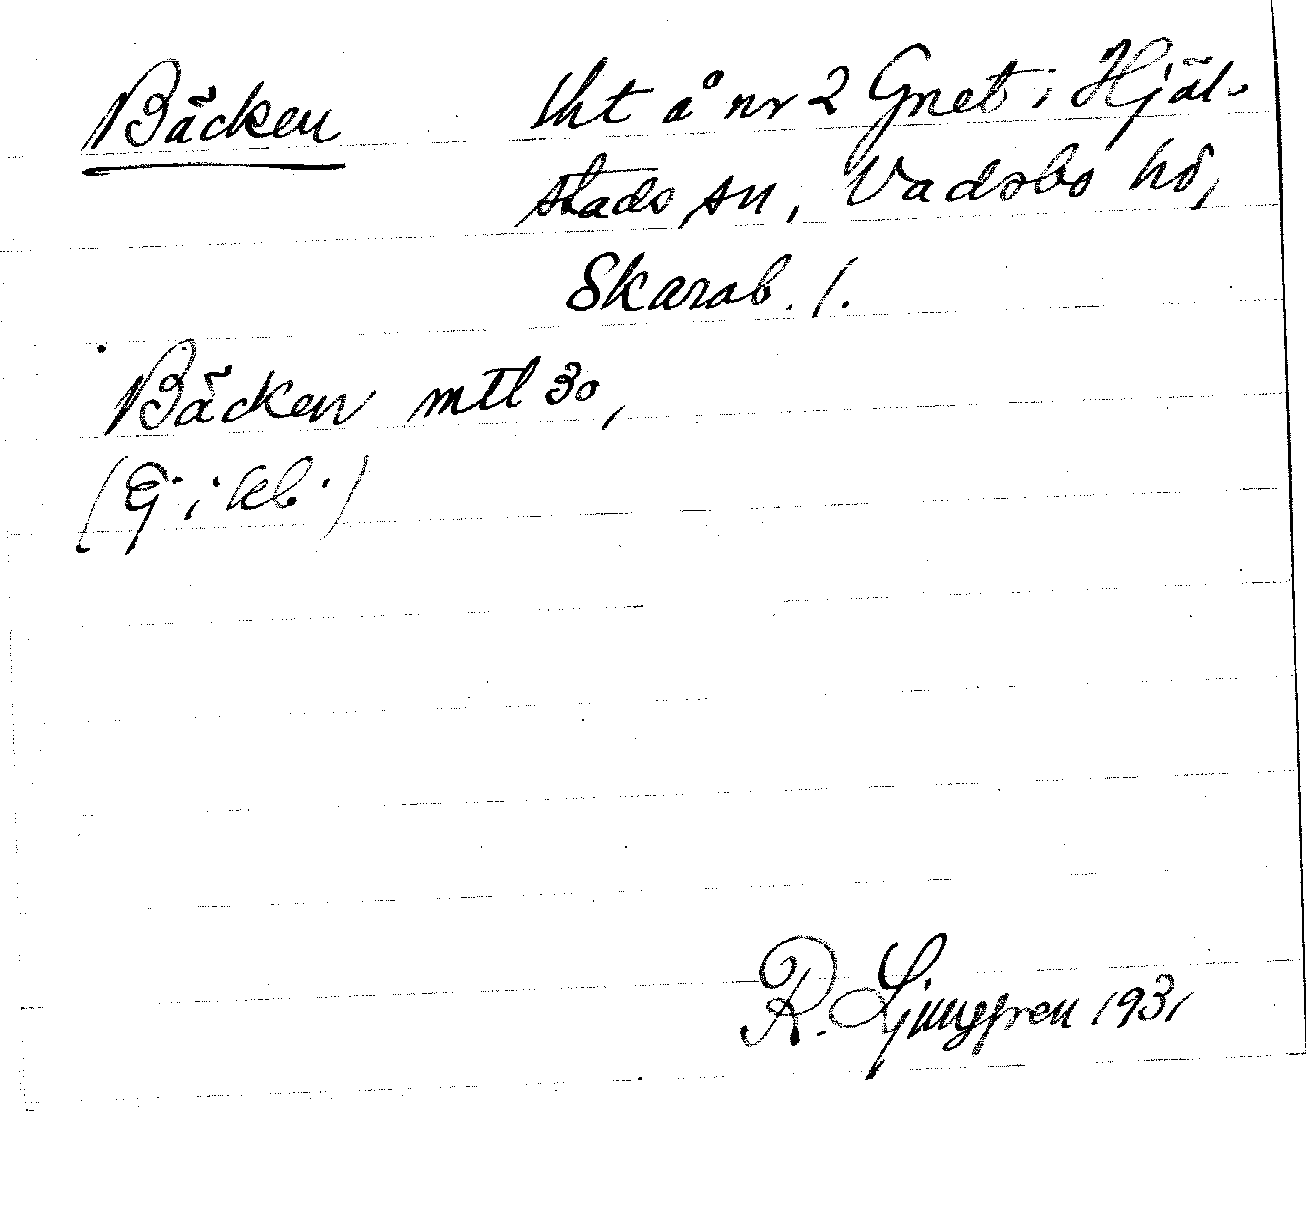 Bäcken lht å nr 2 Gnet i Hjäl-
stads sn, Vadsbo hd,
Skarab. l.
Bäcken mtl 30,
(Ej i kb.)
R. Ljunggren 1931